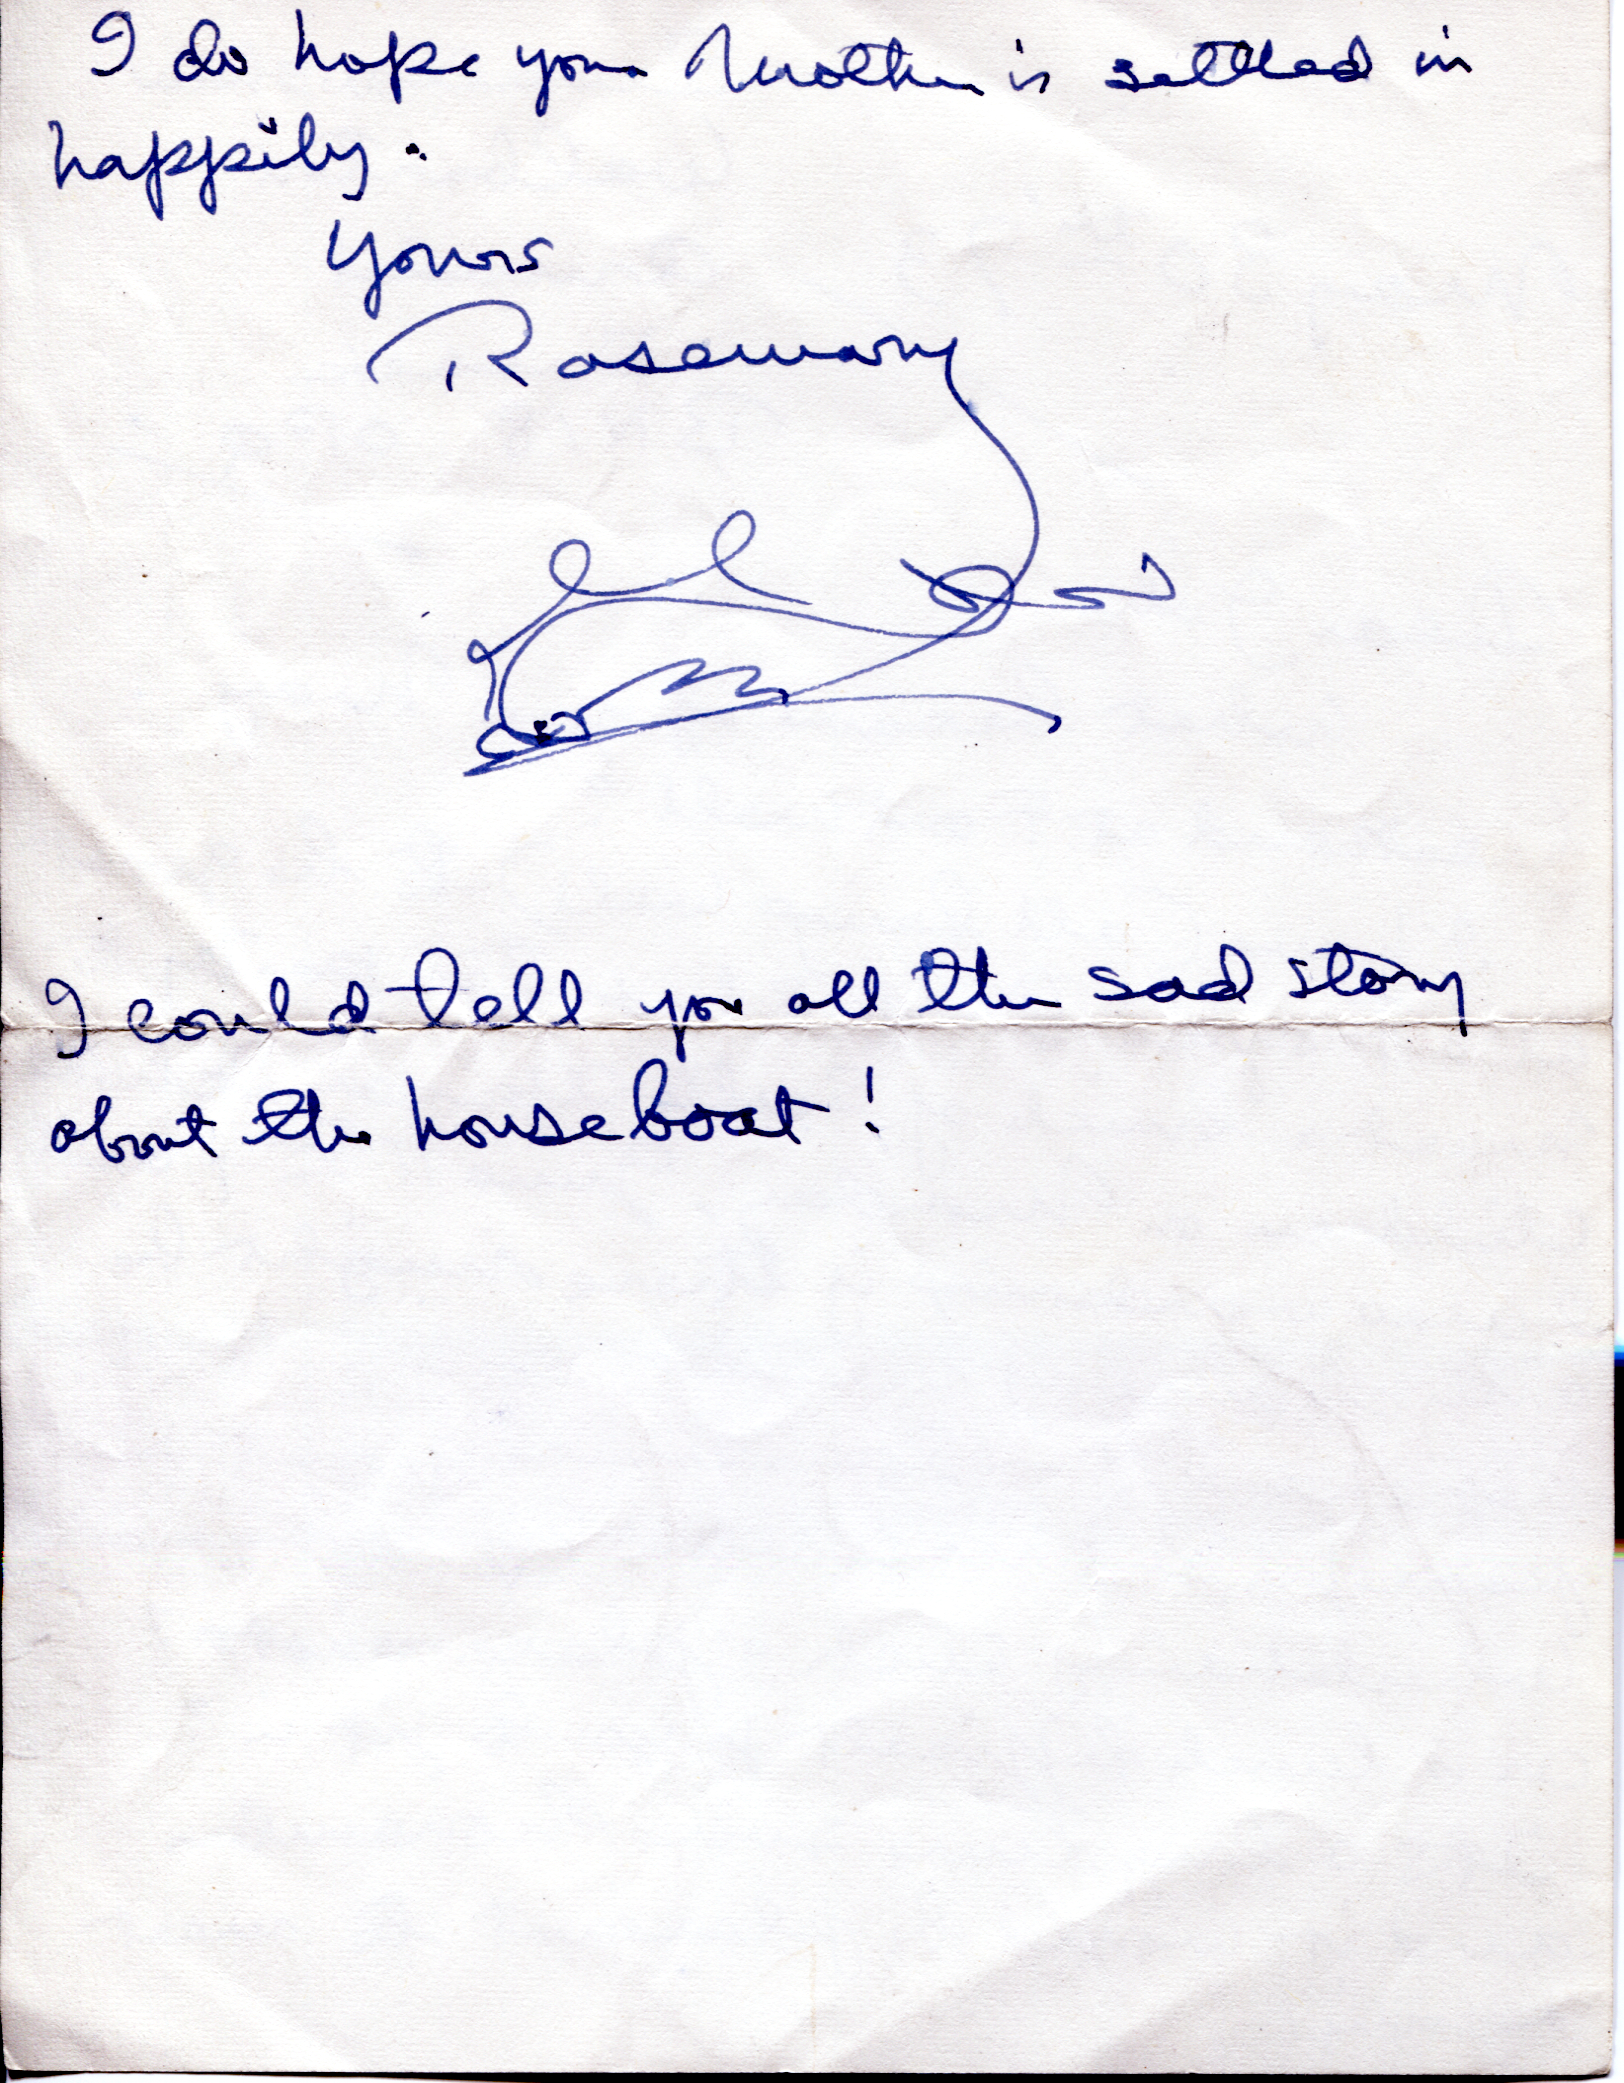 I do hope your Mother is settled in
happily.
Yours
Rosemary
I could tell you all the sad story
about the houseboat!